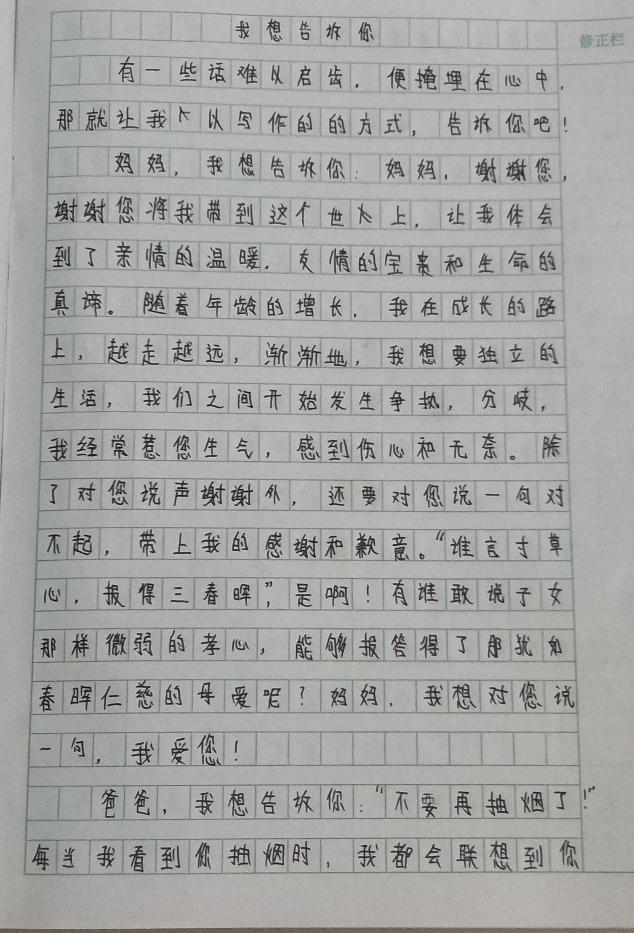 我想告诉你
修正栏
有一些话难以启齿，便掩埋在心中，
那就让我以写作的的方式，告诉你吧！
妈妈，我想告诉你：妈妈，谢谢您，
谢谢您将我带到这个世上，让我体会
到了亲情的温暖，友情的宝贵和生命的
真谛。随着年龄的增长，我在成长的路
上，越走越远，渐渐地，我想要独立的
生活，我们之间开始发生争执，分岐，
我经常惹您生气，感到伤心和无奈。除
了对您说声谢谢外，还要对您说一句对
不起，带上我的感谢和歉意。“谁言寸草
心，报得三春晖”，是啊！有谁敢说子女
那样微弱的孝心，能够报答得了那犹如
春晖仁慈的母爱呢？妈妈，我想对您说
一句，我爱您！
爸爸，我想告诉你：“不要再抽烟了！”
每当我看到你抽烟时，我都会联想到你